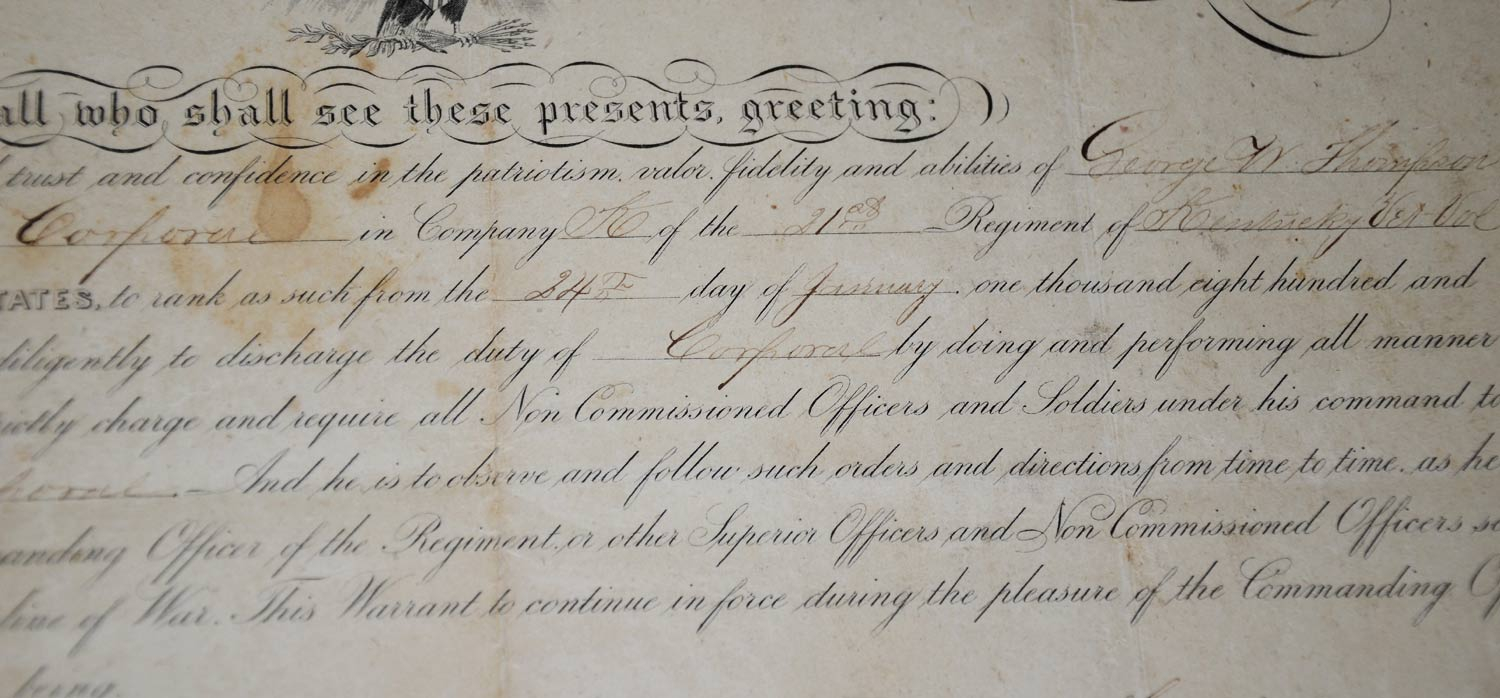 all who shall see these presents, greeting:
trust and confidence in the patriotism, valor, fidelity and abilities of George W. Thompson
Corporal in Company K of the 21st Regiment of Kentucky Vet Vol
TATES, to rank as such from the 24th day of January one thousand eight hundred and
diligently to discharge the duty of Corporal by doing and performing all manner
rictly charge and require all Non Commissioned Officers and Soldiers under his command to
poral. And he is to observe and follow such orders and directions from time to time, as he
anding Officer of the Regiment, or other Superior Officers and Non Commissioned Officers se
line of War. This Warrant to continue in force during the pleasure of the Commanding Of
being.